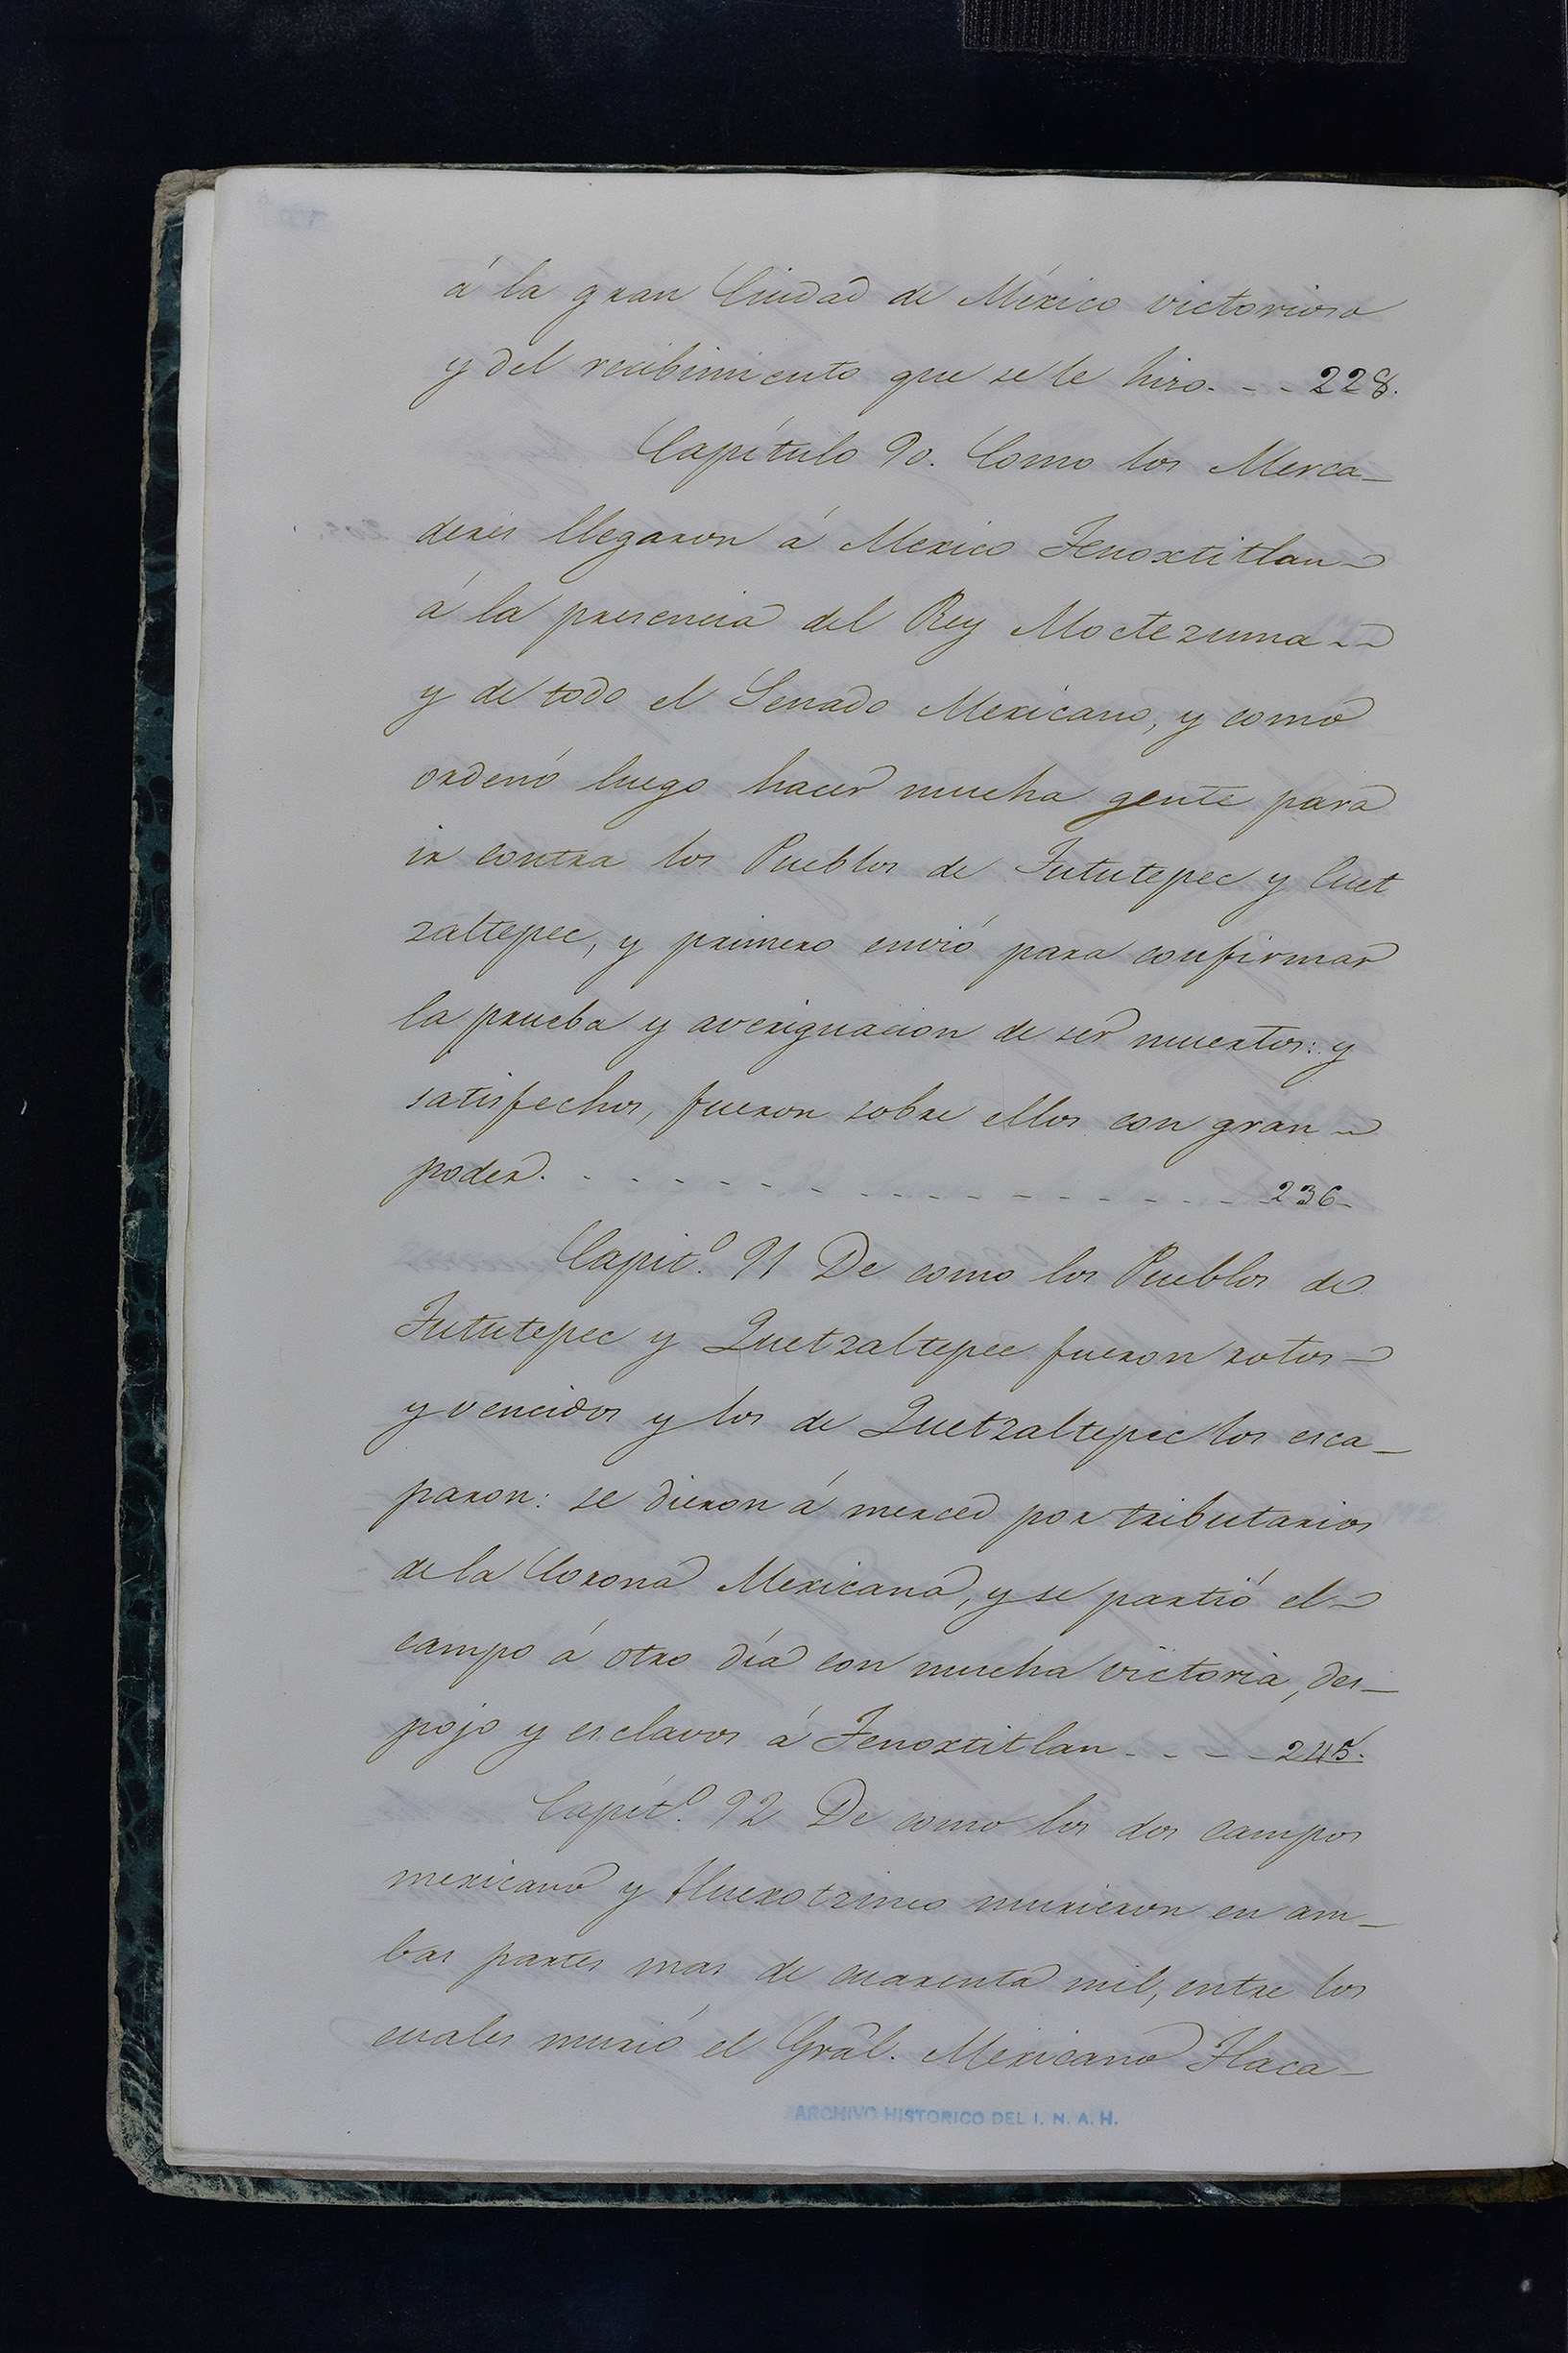 á la gran Ciudad de México victorioso
y del recibimiento que se le hizo. - - 228.
Capítulo 90. Como los Merca-
deres llegaron á Mexico Tenoxtitlan
á la presencia del Rey Moctezuma
y de todo el Senado Mexicano, y como
ordenó luego hacer mucha gente para
ir contra los Pueblos de Tututepec y Cuet
zaltepec, y primero envió para confirmar
la prueba y averiguacion de ser muertos: y
satisfechos, fueron sobre ellos con gran
poder. - - - - - - - - - - - - - - - - 236-
Capit.º 91 De como los Pueblos de
Tututepec y Quetzaltepec fueron rotos
y vencidos y los de Quetzaltepec los esca-
paron: se dieron á merced por tributarios
de la Corona Mexicana, y se partió el
campo á otro día con mucha victoria, des-
pojo y esclavos á Tenoxtitlan - - - - 245.
Capít.º 92 De como los dos campos
mexicano y Huexotzinco murieron en am-
bas partes mas de cuarenta mil, entre los
cuales murió el Grãl. Mexicano Tlaca-
ARCHIVO HISTORICO DEL I. N. A. H.